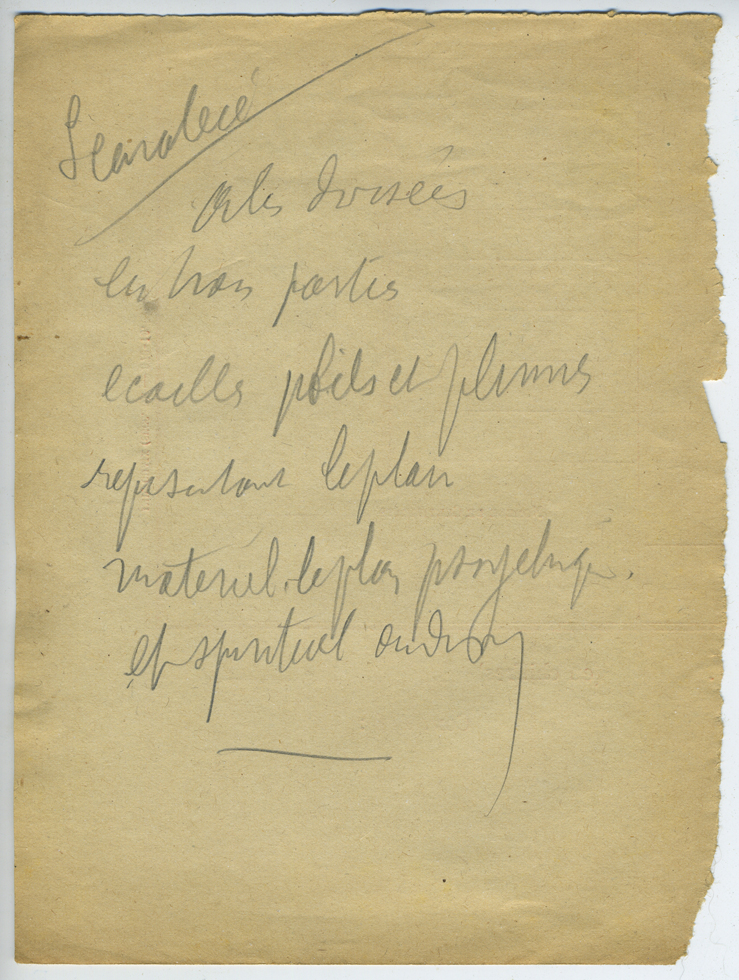 ailes divisées
en trois parties
ecailles poils et plumes
represantant le plan
materiel. le plan psychique.
et spirituel ou divin